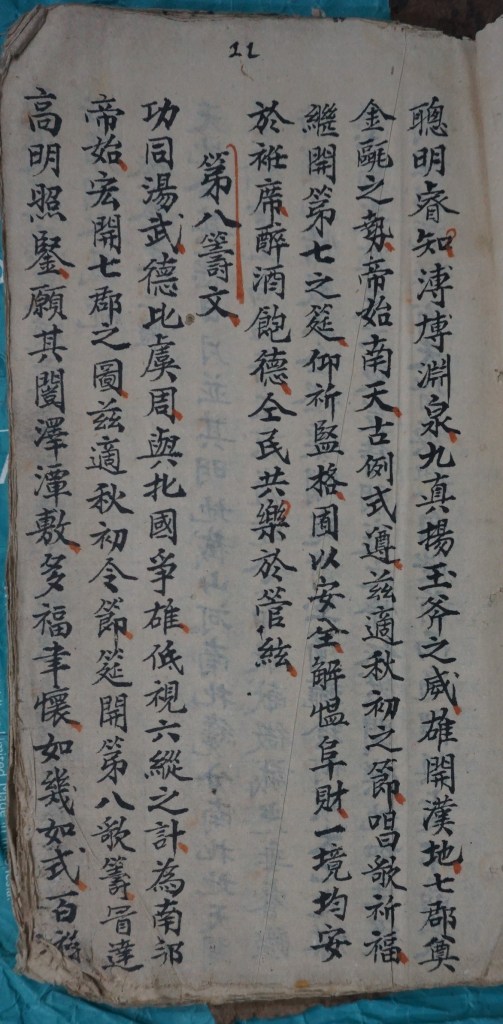 11
聰明睿知溥博淵泉九真揚玉斧之威雄開漢地七郡奠
金甌之勢帝始南天古例式遵茲適秋初之節唱歌祈福
繼開第七之筵仰祈監格囿以安全解慍阜財一境均安
於袵席醉酒飽德仝民共樂於管絃
第八籌文
功同湯武德比虞周與北國爭雄低視六縱之計為南邦
帝始宏開七郡之圖茲適秋初令節筵開第八歌籌冒達
高明照鑒願其闓澤潭敷多福聿懷如幾如式百祿